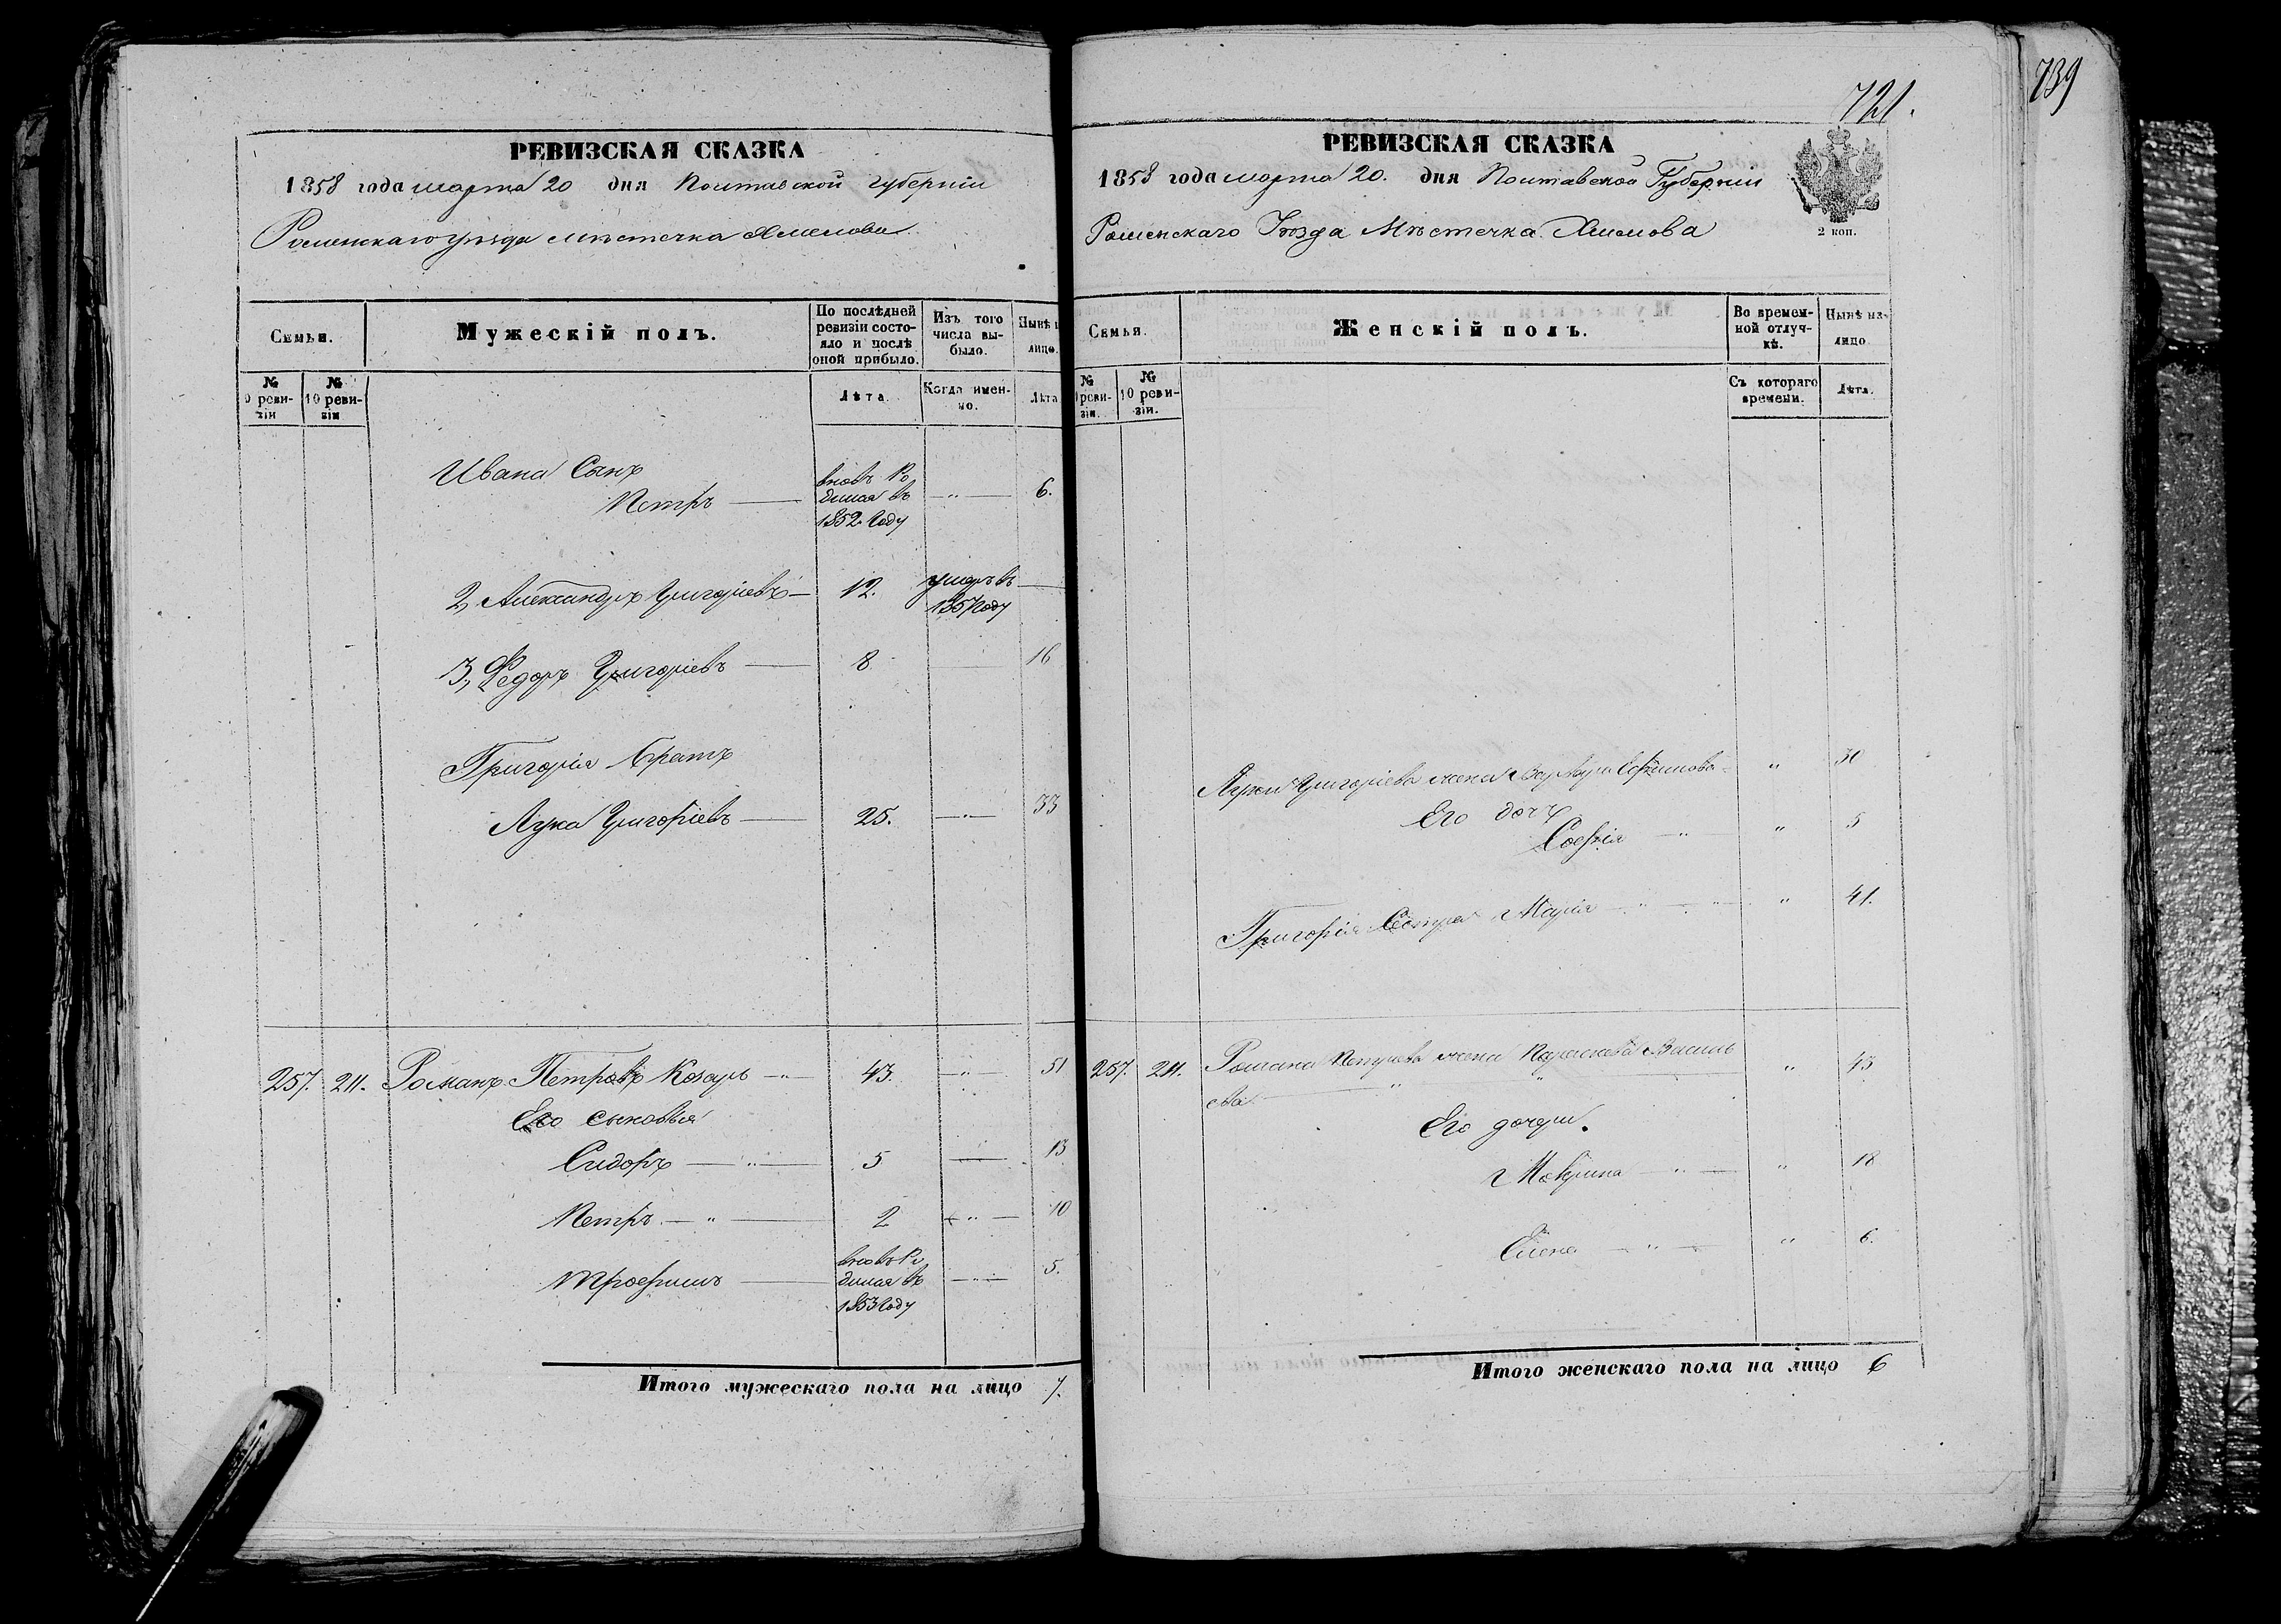 739
721.
РЕВИЗСКАЯ СКАЗКА
1858 года марта 20 дня Полтавской губерніи
Роменскаго уѣзда мѣстечка Хмелова
Семьи. Мужескій полъ. По послѣдней ревизіи состояло и послѣ оной прибыло. Изъ того числа выбыло. Нынѣ лицо.
№ ревизіи № 10 ревизіи Лѣта. Когда именно. Лѣта
Ивана Сынъ
Петръ вновь Родился въ 1852 году — " — 6.
2, Александръ Григоріевъ — 12. умеръ въ 1857 году —
3, Федоръ Григоріевъ — 8 — 16
Григорія братъ
Лука Григоріевъ — 25. — " — 33
257. 211. Романъ Петровъ Козарь — " — 43. — " — 51
Его сыновья
Сидоръ — " — 5 — " — 13
Петръ — " — 2 — " — 10
Трофимъ — вновь Родился въ 1853 году — " — 5.
Итого мужескаго пола на лицо 7.
РЕВИЗСКАЯ СКАЗКА
1858 года марта 20. дня Полтавской Губерніи
Роменскаго Уѣзда Мѣстечка Хмелова
2 коп.
Семья. Женскій полъ. Во временной отлучкѣ. Нынѣ на лицо
№ ревизіи. № 10 ревизіи. Съ котораго времени. Лѣта.
Луки Григоріева жена Варвара " 30
Его дочь
Софія — " — " 5
Григорія Сестра Марія — " — " — " 41.
257. 211. Романа Петрова жена Параскева Василь
ева — " — " — " 43
Его дочери.
Мокрина — " — " 18
Елена — " — " 6.
Итого женскаго пола на лицо 6